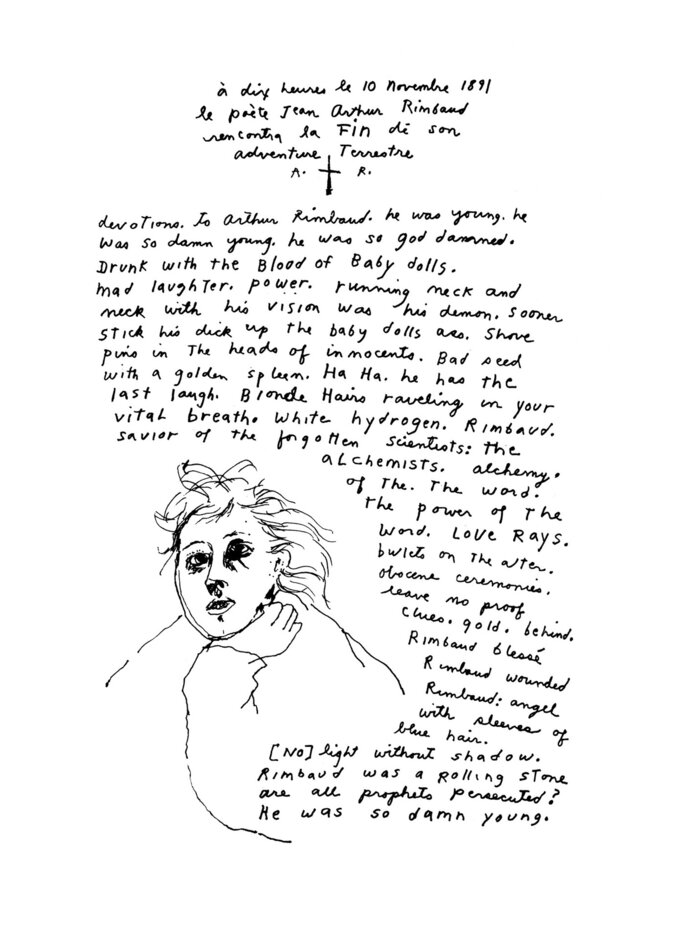 à dix heures le 10 novembre 1891
le poète Jean Arthur Rimbaud
rencontra la Fin de son
adventure Terrestre
A. R.
devotions. To Arthur Rimbaud. he was young. he
was so damn young. he was so god damned.
Drunk with the Blood of Baby dolls.
mad laughter. power. running neck and
neck with his vision was his demon. Sooner
stick his dick up the baby dolls ass. Shove
pins in The heads of innocents. Bad seed
with a golden spleen. Ha Ha. he has the
last laugh. Blonde Hairs raveling in your
vital breath. White hydrogen. Rimbaud.
savior of the forgotten scientists: the
aLchemists. alchemy.
of The. The word.
the power of The
word. Love Rays.
bullets on The alter.
obscene ceremonies.
leave no proof
clues. gold. behind.
Rimbaud blessé
Rimbaud wounded
Rimbaud: angel
with sleeves of
blue hair.
[No] light without shadow.
Rimbaud was a Rolling Stone
are all prophets persecuted?
He was so damn young.